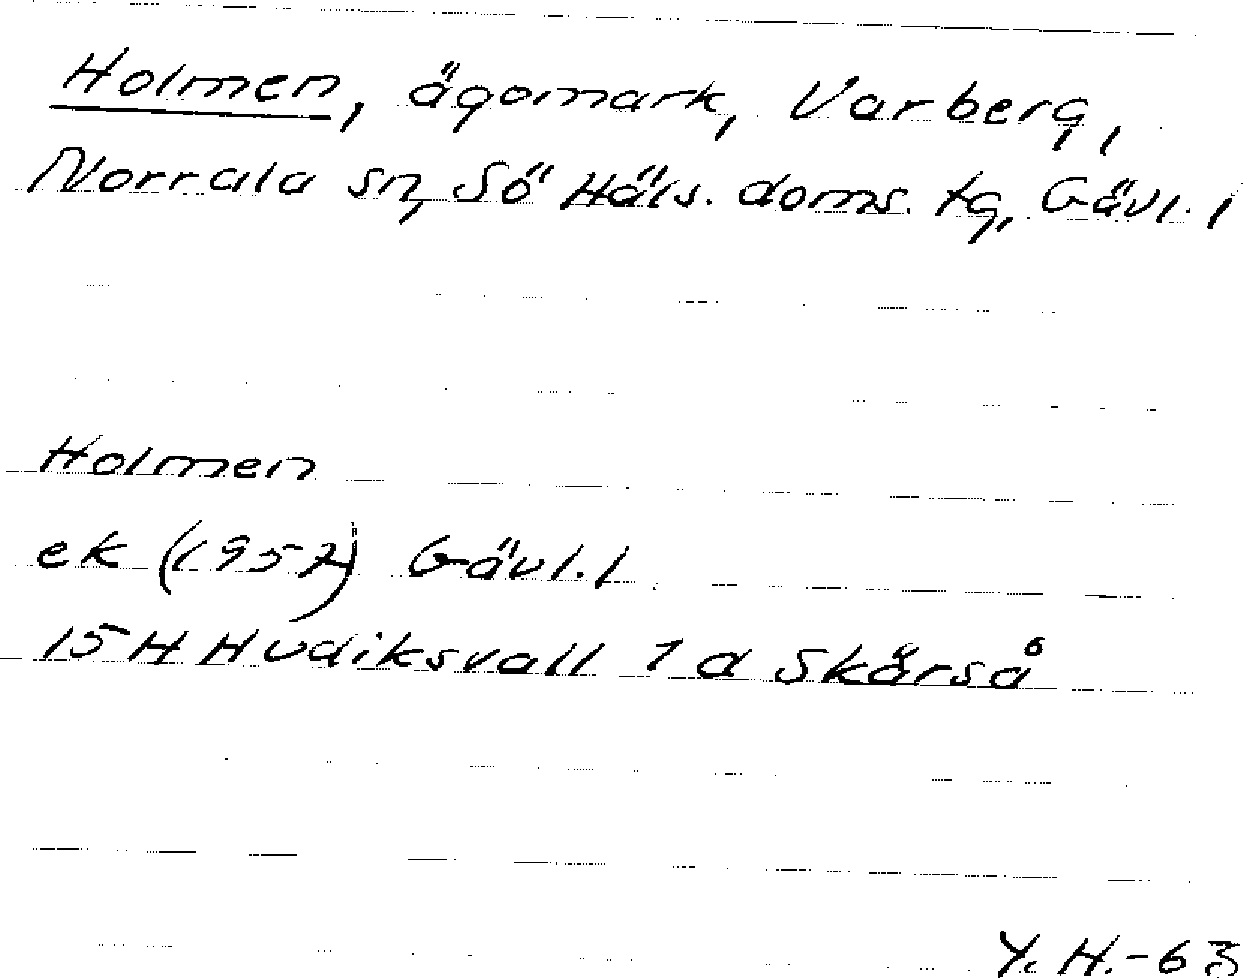 Holmen, ägomark, Varberg,
Norrala sn, Sö Häls. doms. tg, Gävl. l
Holmen
ek (1957) Gävl. l
15 H Hudiksvall 1 a Skårså
Y. H. -63